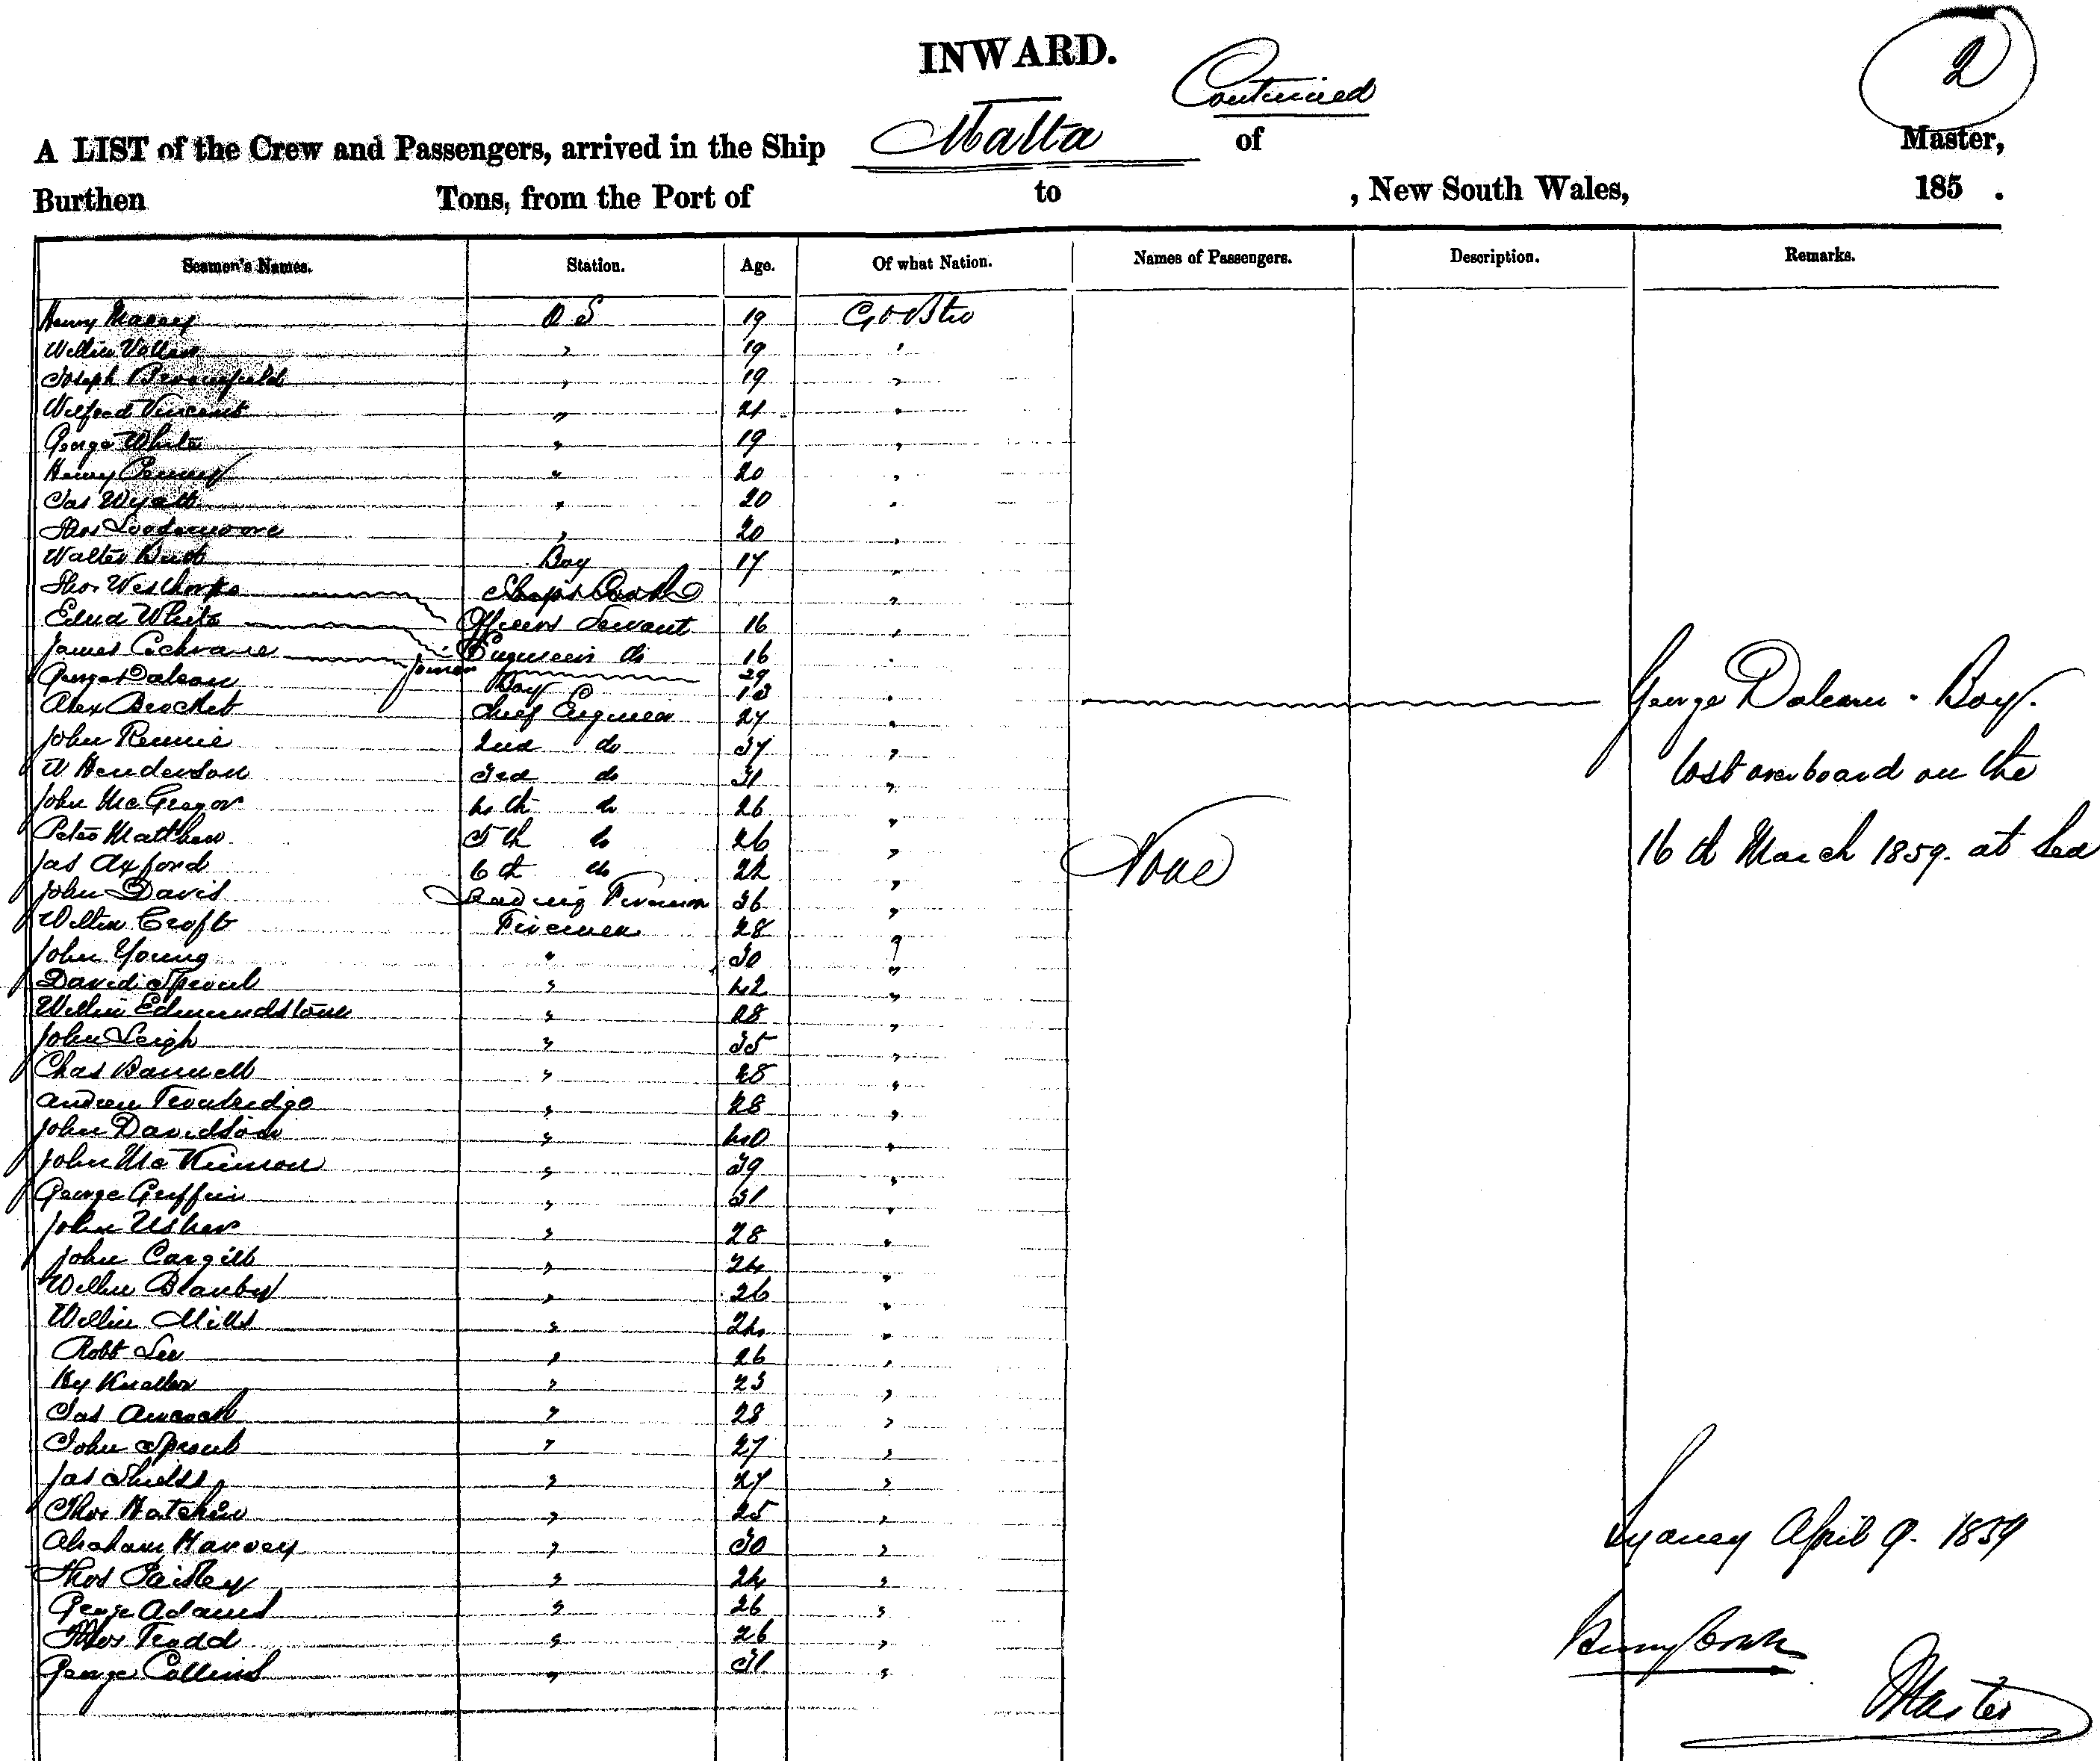 INWARD.
Continued
2
A LIST of the Crew and Passengers, arrived in the Ship Malta of Master,
Burthen Tons, from the Port of to , New South Wales, 185 .
Seamen's Names. Station. Age. Of what Nation. Names of Passengers. Description. Remarks.
Henry Massey O S 19 Gt Btn
Willm 19 "
Joseph Broomfield " 19 "
Wilfred Vincent " 21 "
George White " 19 "
Henry " 20 "
Jas Wyatt " 20 "
Thos " 20 "
Walter Boy 17 "
Thos Westhorpe Ships Cook "
Edwd White Officers Servant 16 "
James Cochrane Engineers do 16 "
Joiner 29
George Dolean Boy 13 " George Dolean - Boy.
Alex Chief Engineer 27 "
John Rennie 2nd do 37 " lost overboard on the
W Henderson 3rd do 31 "
John McGregor 4th do 26 "
Peter Matthew 5th do 26 " None 16th March 1859. at Sea
Jas Axford 6th do 22 "
John Davis Leading Fireman 36 "
Willm Croft Firemen 28 "
John Young " 30 "
David Sproul " 42 "
Willm Edmundstone " 28 "
John Leigh " 35 "
Chas Barnwell " 28 "
Andrew Trowbridge " 28 "
John Davidson " 40 "
John McKinnon " 39 "
George Griffin " 31 "
John Usher " 28 "
John Cargill " 24 "
Willm " 26 "
Willm Mills " 24 "
Robt Lee " 26 "
Hy " 23 "
Jas " 28 "
John Sproul " 27 "
Jas Shields " 27 "
Thos Hatchin " 25 "
Sydney April 9. 1859
Abraham Harvey " 30 "
Thos Paisley " 24 "
George Adams " 26 "
Thos Tradd " 26 "
Henry
George Collins " 31 "
Master